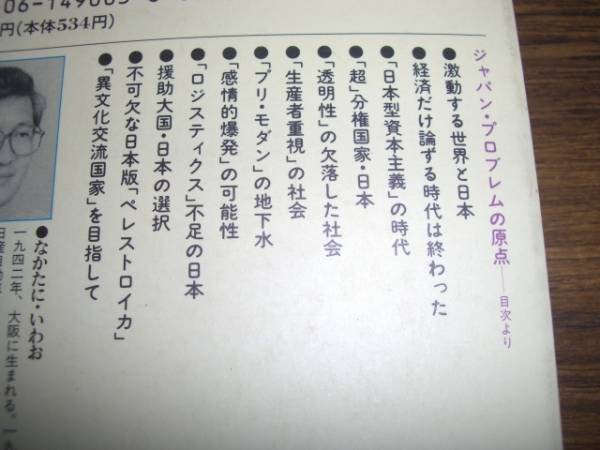 06-149
円(本体534円)
ジャパン・プロブレムの原点——目次より
●激動する世界と日本
●経済だけ論ずる時代は終わった
●「日本型資本主義」の時代
●「超」分権国家・日本
●「透明性」の欠落した社会
●「生産者重視」の社会
●「プリ・モダン」の地下水
●「感情的爆発」の可能性
●「ロジスティクス」不足の日本
●援助大国・日本の選択
●不可欠な日本版「ペレストロイカ」
●「異文化交流国家」を目指して
●なかたに・いわお
一九四二年、大阪に生まれる。一九
日産自動車